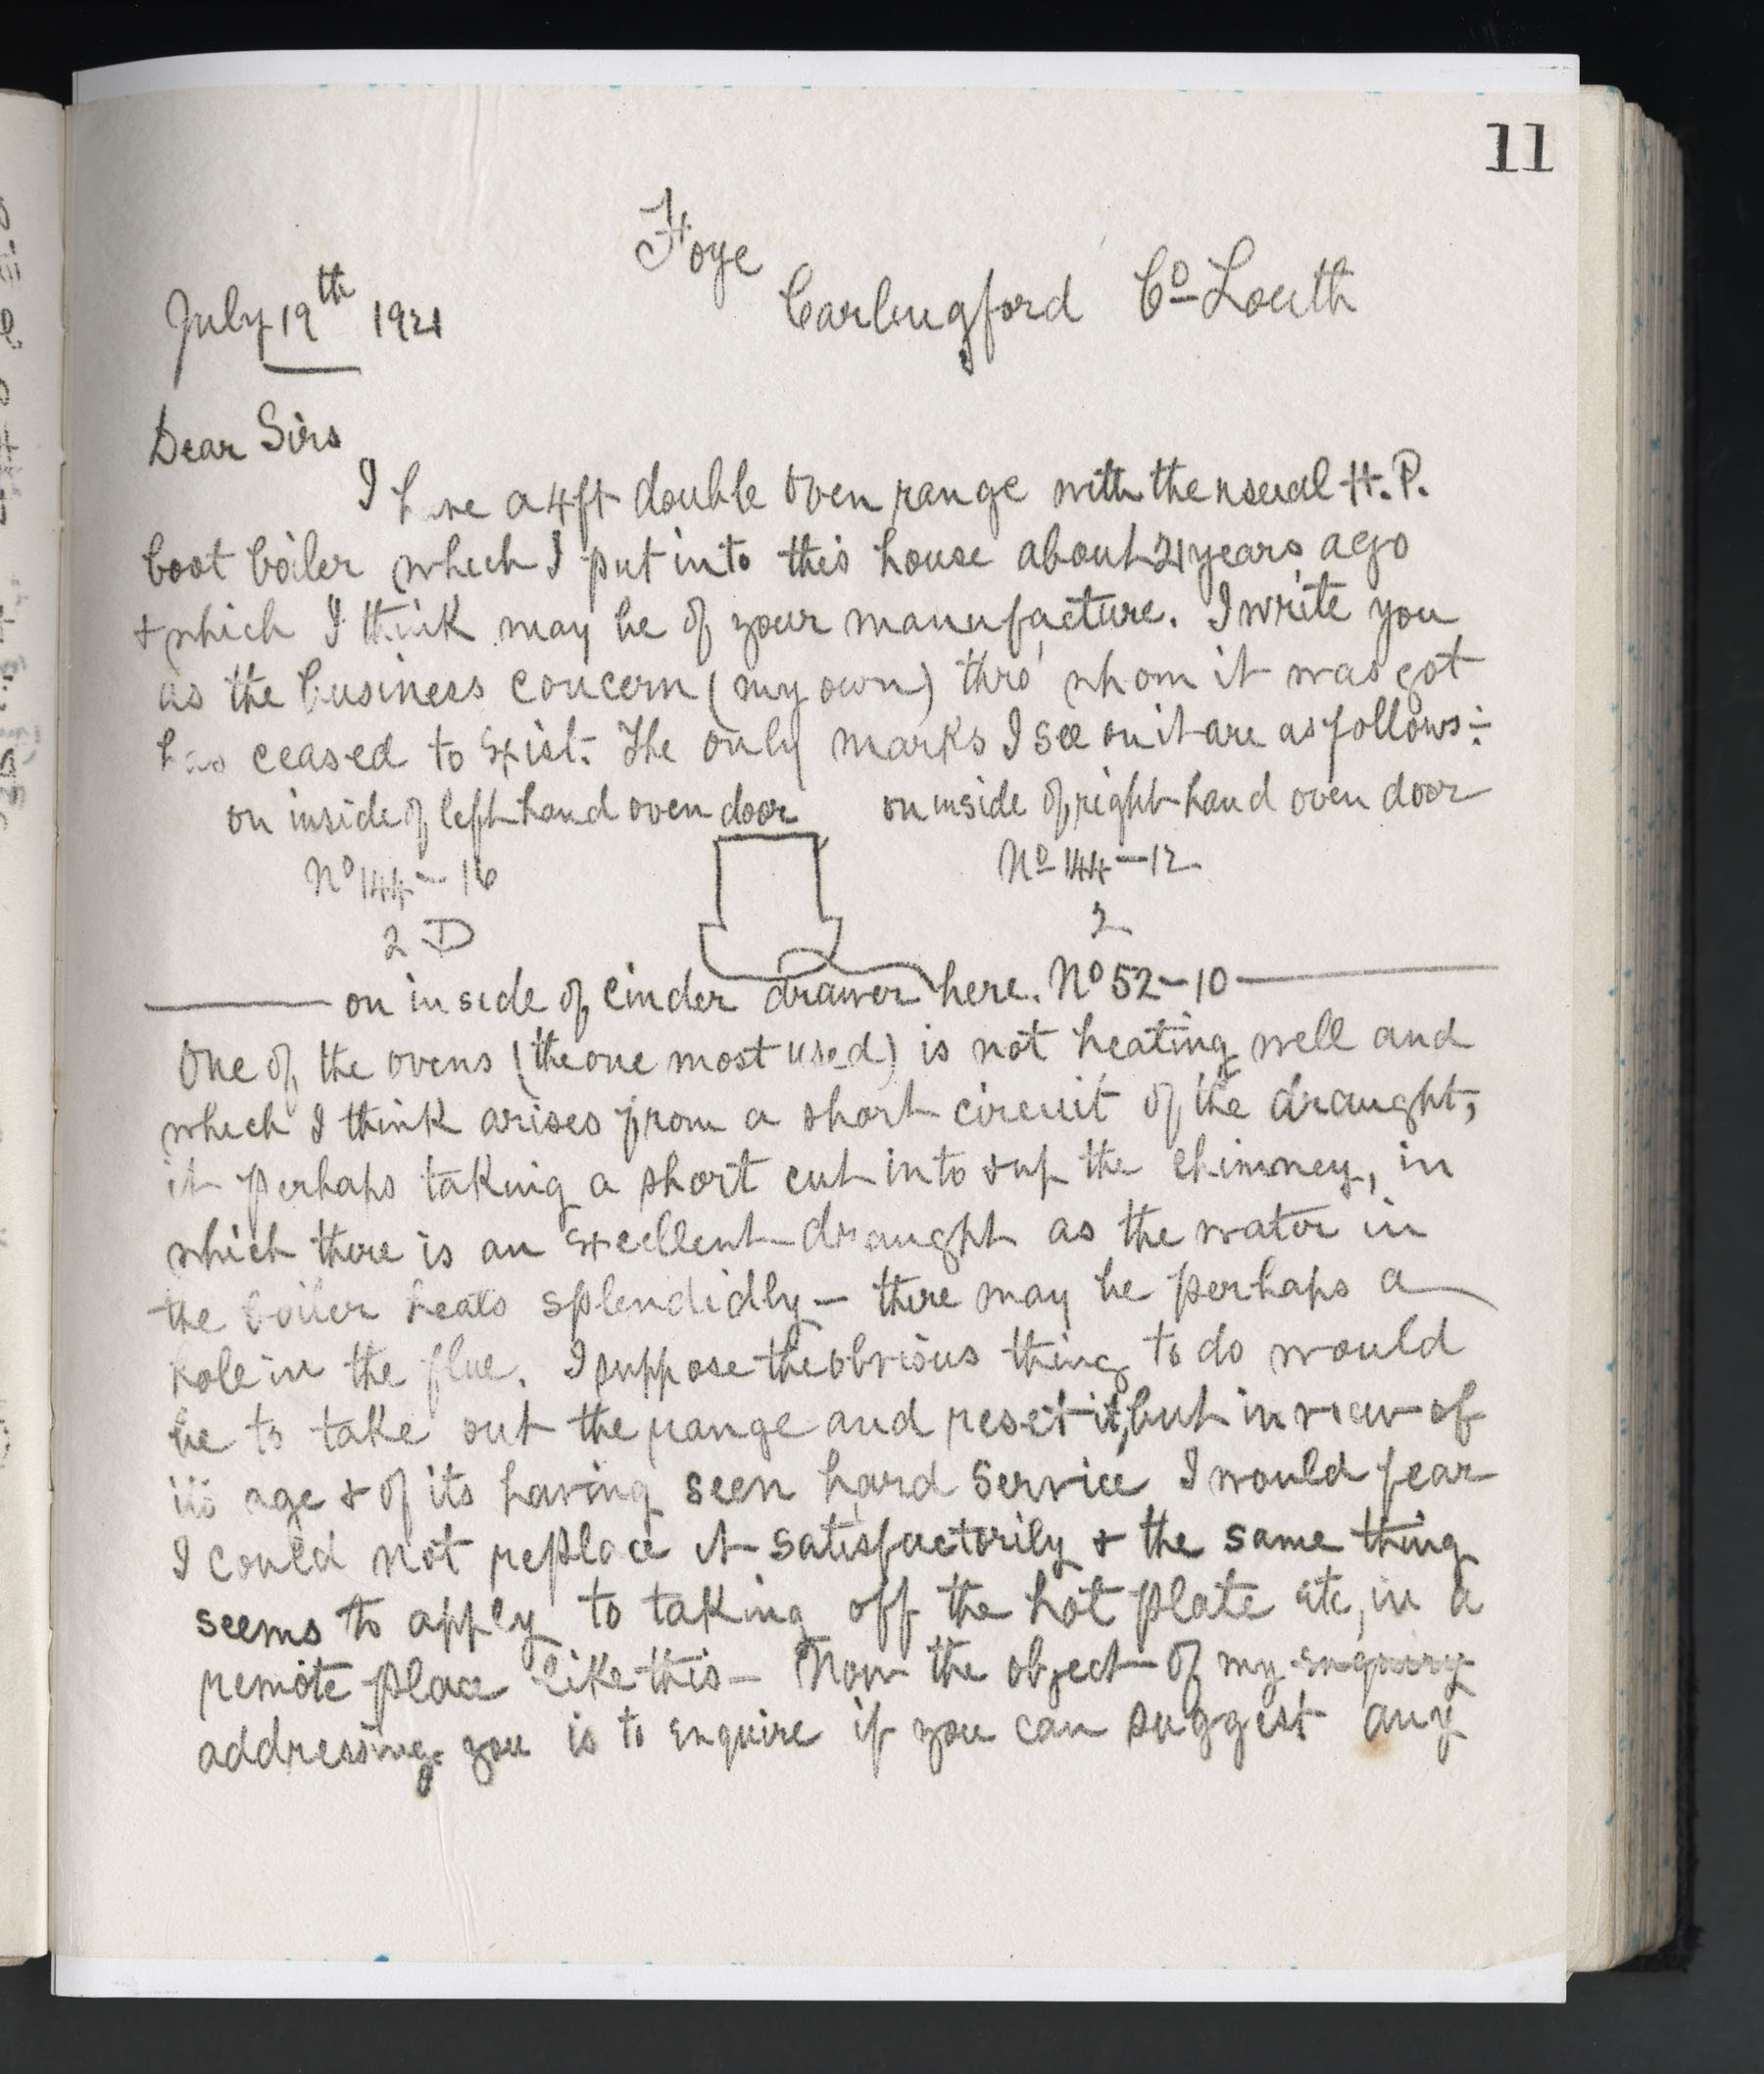 11
Foye
Carlingford Co Louth
July 19th 1921
Dear Sirs
I have a 4ft double oven range with the usual H. P.
boot boiler which I put into this house about 21 years ago
& which I think may be of your manufacture. I write you
as the business concern (my own) thro' whom it was got
has ceased to exist. The only marks I see on it are as follows:-
on inside of left hand oven door on inside of right hand oven door
No 144 - 16 No 144 - 12
2 D 2
on inside of cinder drawer here. No 52 - 10
One of the ovens (the one most used) is not heating well and
which I think arises from a short circuit of the draught,
it perhaps taking a short cut into & up the chimney, in
which there is an excellent draught as the water in
the boiler heats splendidly — there may be perhaps a
hole in the flue. I suppose the obvious thing to do would
be to take out the range and reset it, but in view of
its age & of its having seen hard service I would fear
I could not replace it satisfactorily & the same thing
seems to apply to taking off the hot plate etc, in a
remote place like this — Now the object of my enquiry
addressing you is to enquire if you can suggest any